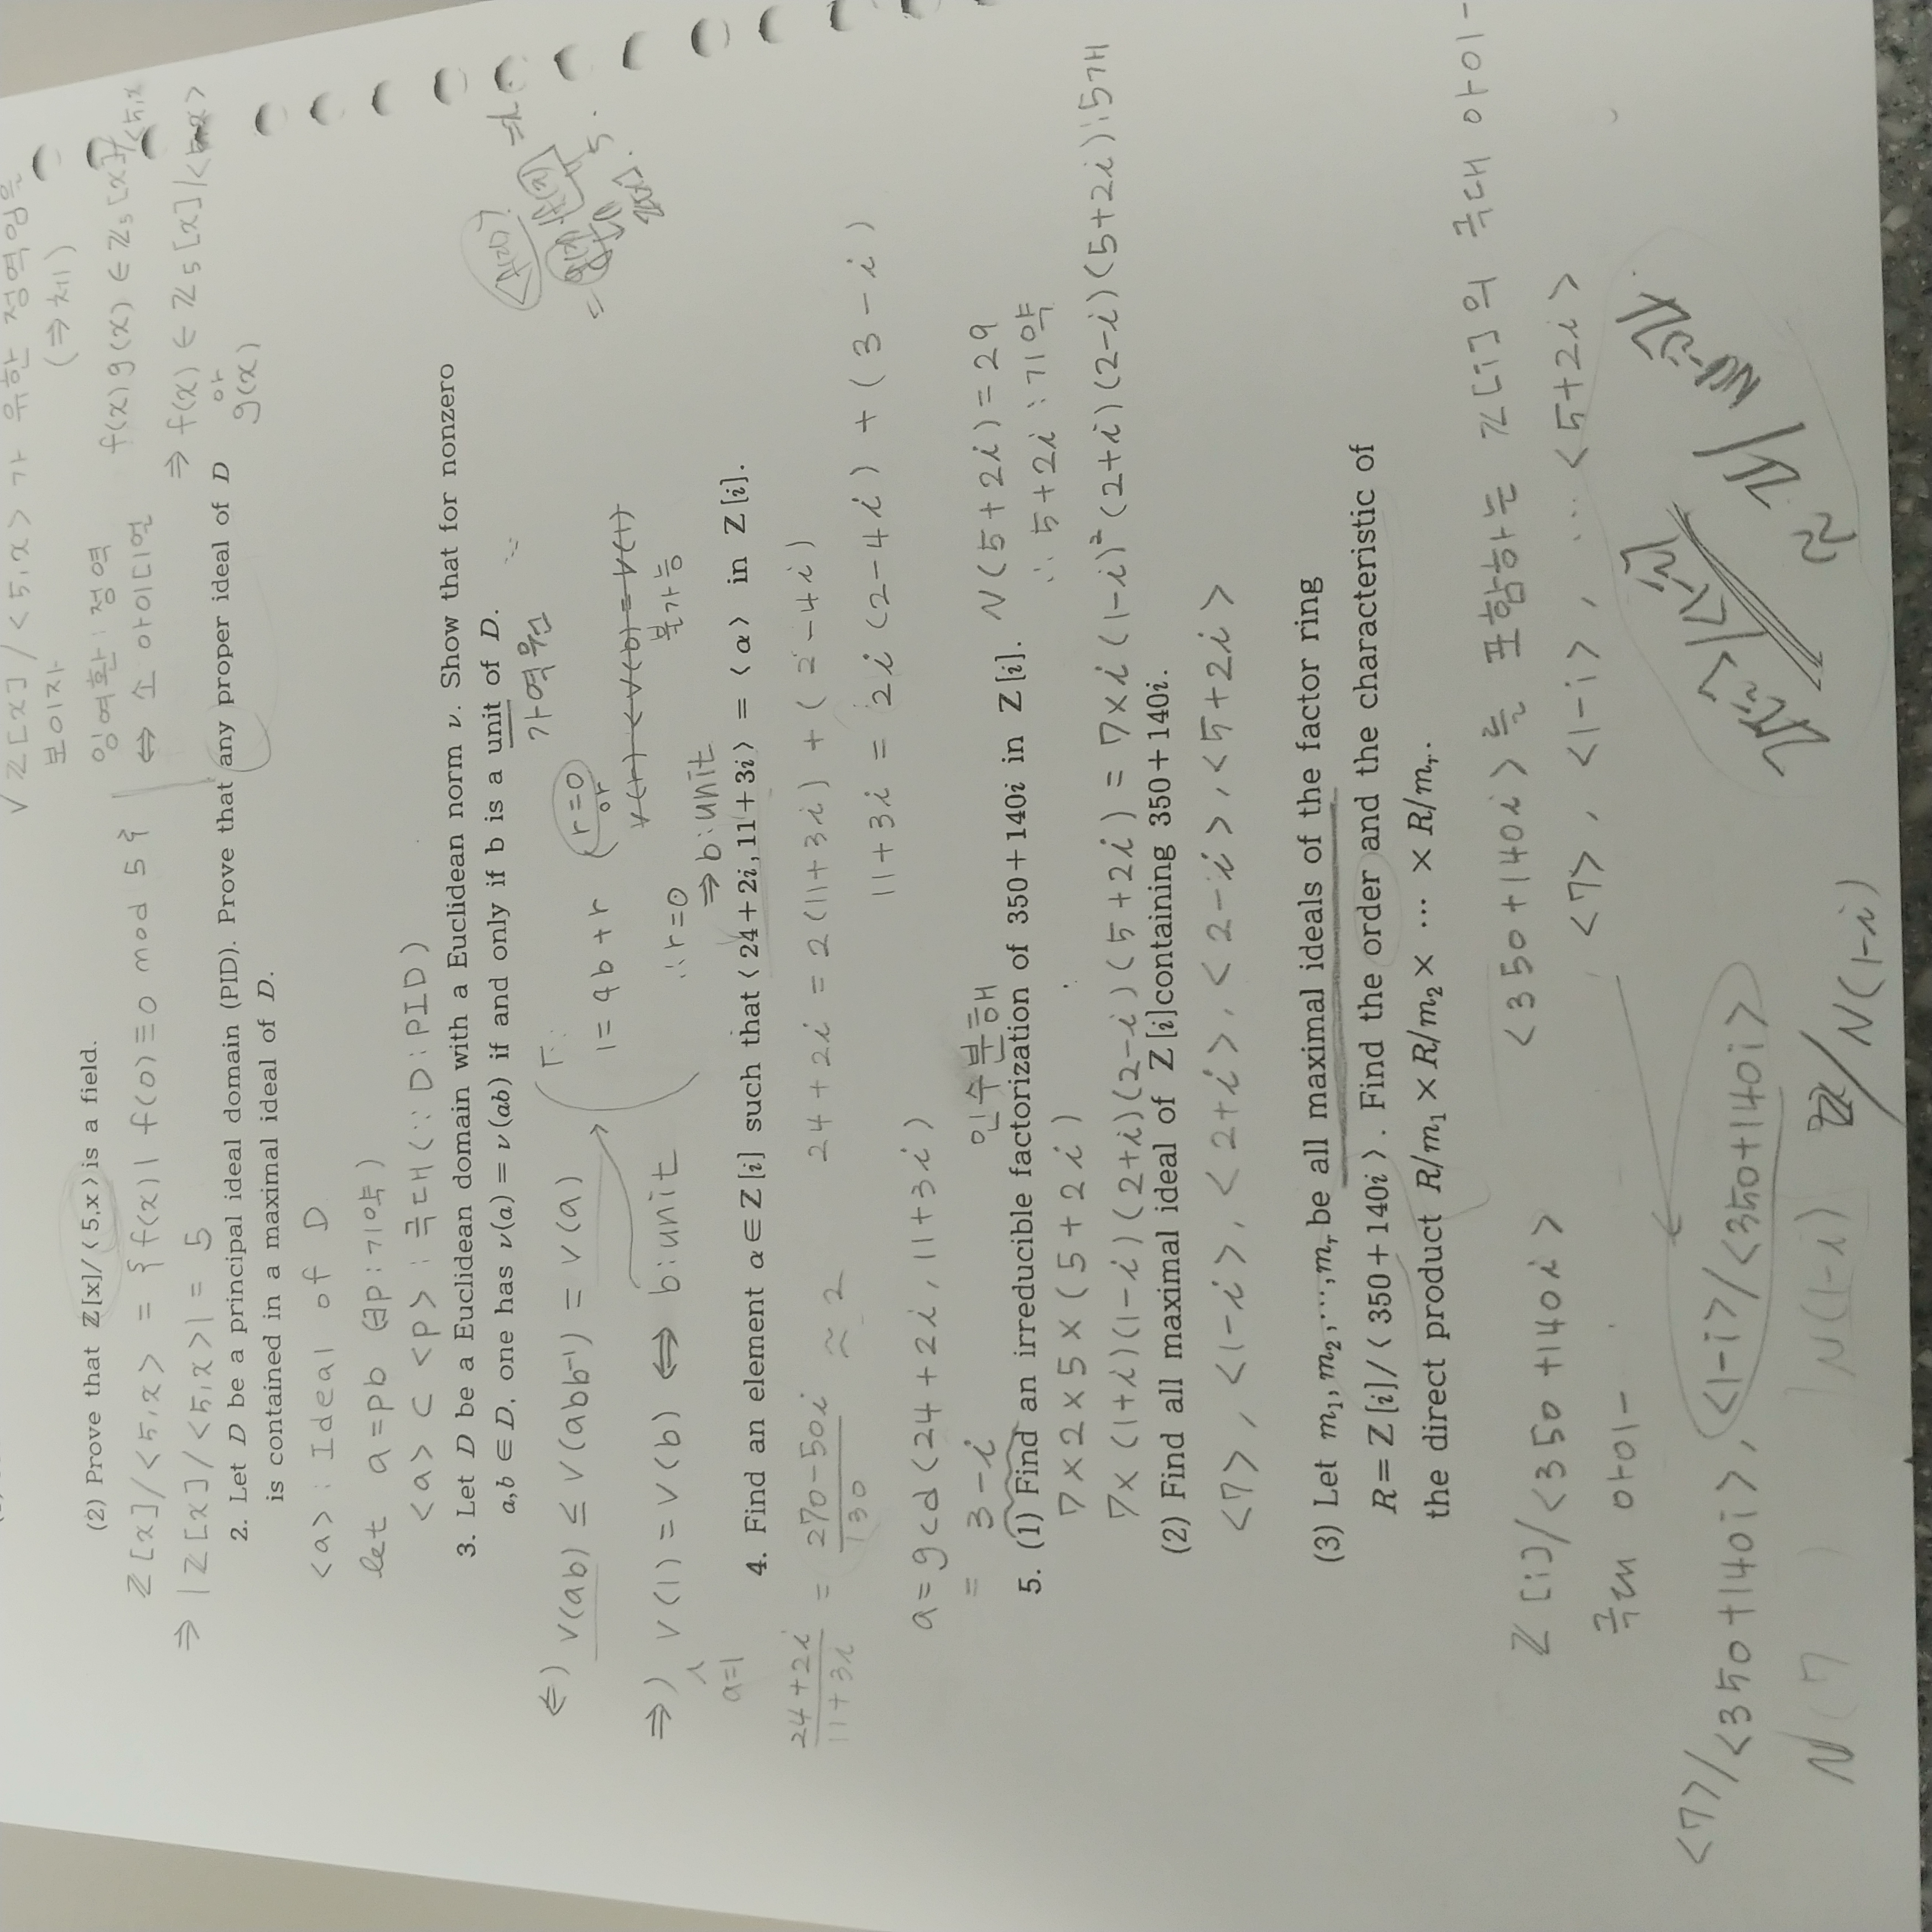 √ ℤ[x]/<5,x> 가 유한 정역임을
보이자 (⇒체)
(2) Prove that ℤ[x]/⟨5,x⟩ is a field.
잉여환 : 정역
⇔ 소 아이디얼
f(x)g(x) ∈ ℤ₅[x]/<5,x
⇒ f(x) ∈ ℤ₅[x]/<5,x>
or
g(x)
ℤ[x]/<5,x> = {f(x) | f(0)≡0 mod 5}
⇒ |ℤ[x]/<5,x>| = 5
2. Let D be a principal ideal domain (PID). Prove that any proper ideal of D
is contained in a maximal ideal of D.
<a> : Ideal of D
let a=pb (∃p:기약)
<a> ⊂ <p> : 극대 (∵ D:PID)
3. Let D be a Euclidean domain with a Euclidean norm ν. Show that for nonzero
a,b ∈ D, one has ν(a) = ν(ab) if and only if b is a unit of D.
가역원
⇐) v(ab) ≤ v(abb⁻¹) = v(a)
1 = qb + r (r=0
or
v(r) < v(b) = v(1)
불가능
∴ r=0
⇒ b:unit
⇒) v(1) = v(b) ⇔ b:unit
a=1
4. Find an element α ∈ ℤ[i] such that ⟨24+2i, 11+3i⟩ = ⟨α⟩ in ℤ[i].
24+2i / 11+3i = 270-50i / 130 ≈ 2
24+2i = 2(11+3i) + (2-4i)
11+3i = 2i(2-4i) + (3-i)
a = gcd(24+2i, 11+3i)
= 3-i
인수분해
5. (1) Find an irreducible factorization of 350+140i in ℤ[i].
N(5+2i) = 29
∴ 5+2i : 기약
7×2×5×(5+2i)
7×(1+i)(1-i)(2+i)(2-i)(5+2i) = 7×i(1-i)²(2+i)(2-i)(5+2i) : 5개
(2) Find all maximal ideal of ℤ[i]containing 350+140i.
<7>, <1-i>, <2+i>, <2-i>, <5+2i>
(3) Let m₁, m₂, ⋯, mᵣ be all maximal ideals of the factor ring
R = ℤ[i]/⟨350+140i⟩. Find the order and the characteristic of
the direct product R/m₁ × R/m₂ × ⋯ × R/mᵣ.
<350+140i>를 포함하는 ℤ[i]의 극대 아이-
ℤ[i]/<350+140i>
<7>, <1-i>, … <5+2i>
극대 아이-
<7>/<350+140i>, <1-i>/<350+140i>
ℤ[i]/<1-i>
≈ ℤ/N(1-i)ℤ
N(7 ) N(1-i) ℤ/N(1-i)